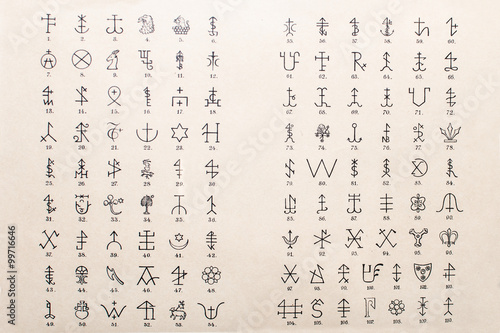 1. 2. 3. 4. 5. 6.
7. 8. 9. 10. 11. 12.
13. 14. 15. 16. 17. 18.
19. 20. 21. 22. 23. 24.
25. 26. 27. 28. 29. 30.
31. 32. 33. 34. 35. 36.
37. 38. 39. 40. 41. 42.
43. 44. 45. 46. 47. 48.
49. 50. 51. 52. 53. 54.
55. 56. 57. 58. 59. 60.
61. 62. 63. 64. 65. 66.
67. 68. 69. 70. 71. 72.
73. 74. 75. 76. 77. 78.
79. 80. 81. 82. 83. 84.
85. 86. 87. 88. 89. 90.
91. 92. 93. 94. 95. 96.
97. 98. 99. 100. 101. 102. 103.
104. 105. 106. 107. 108. 109. 110.
Adobe Stock
99716646